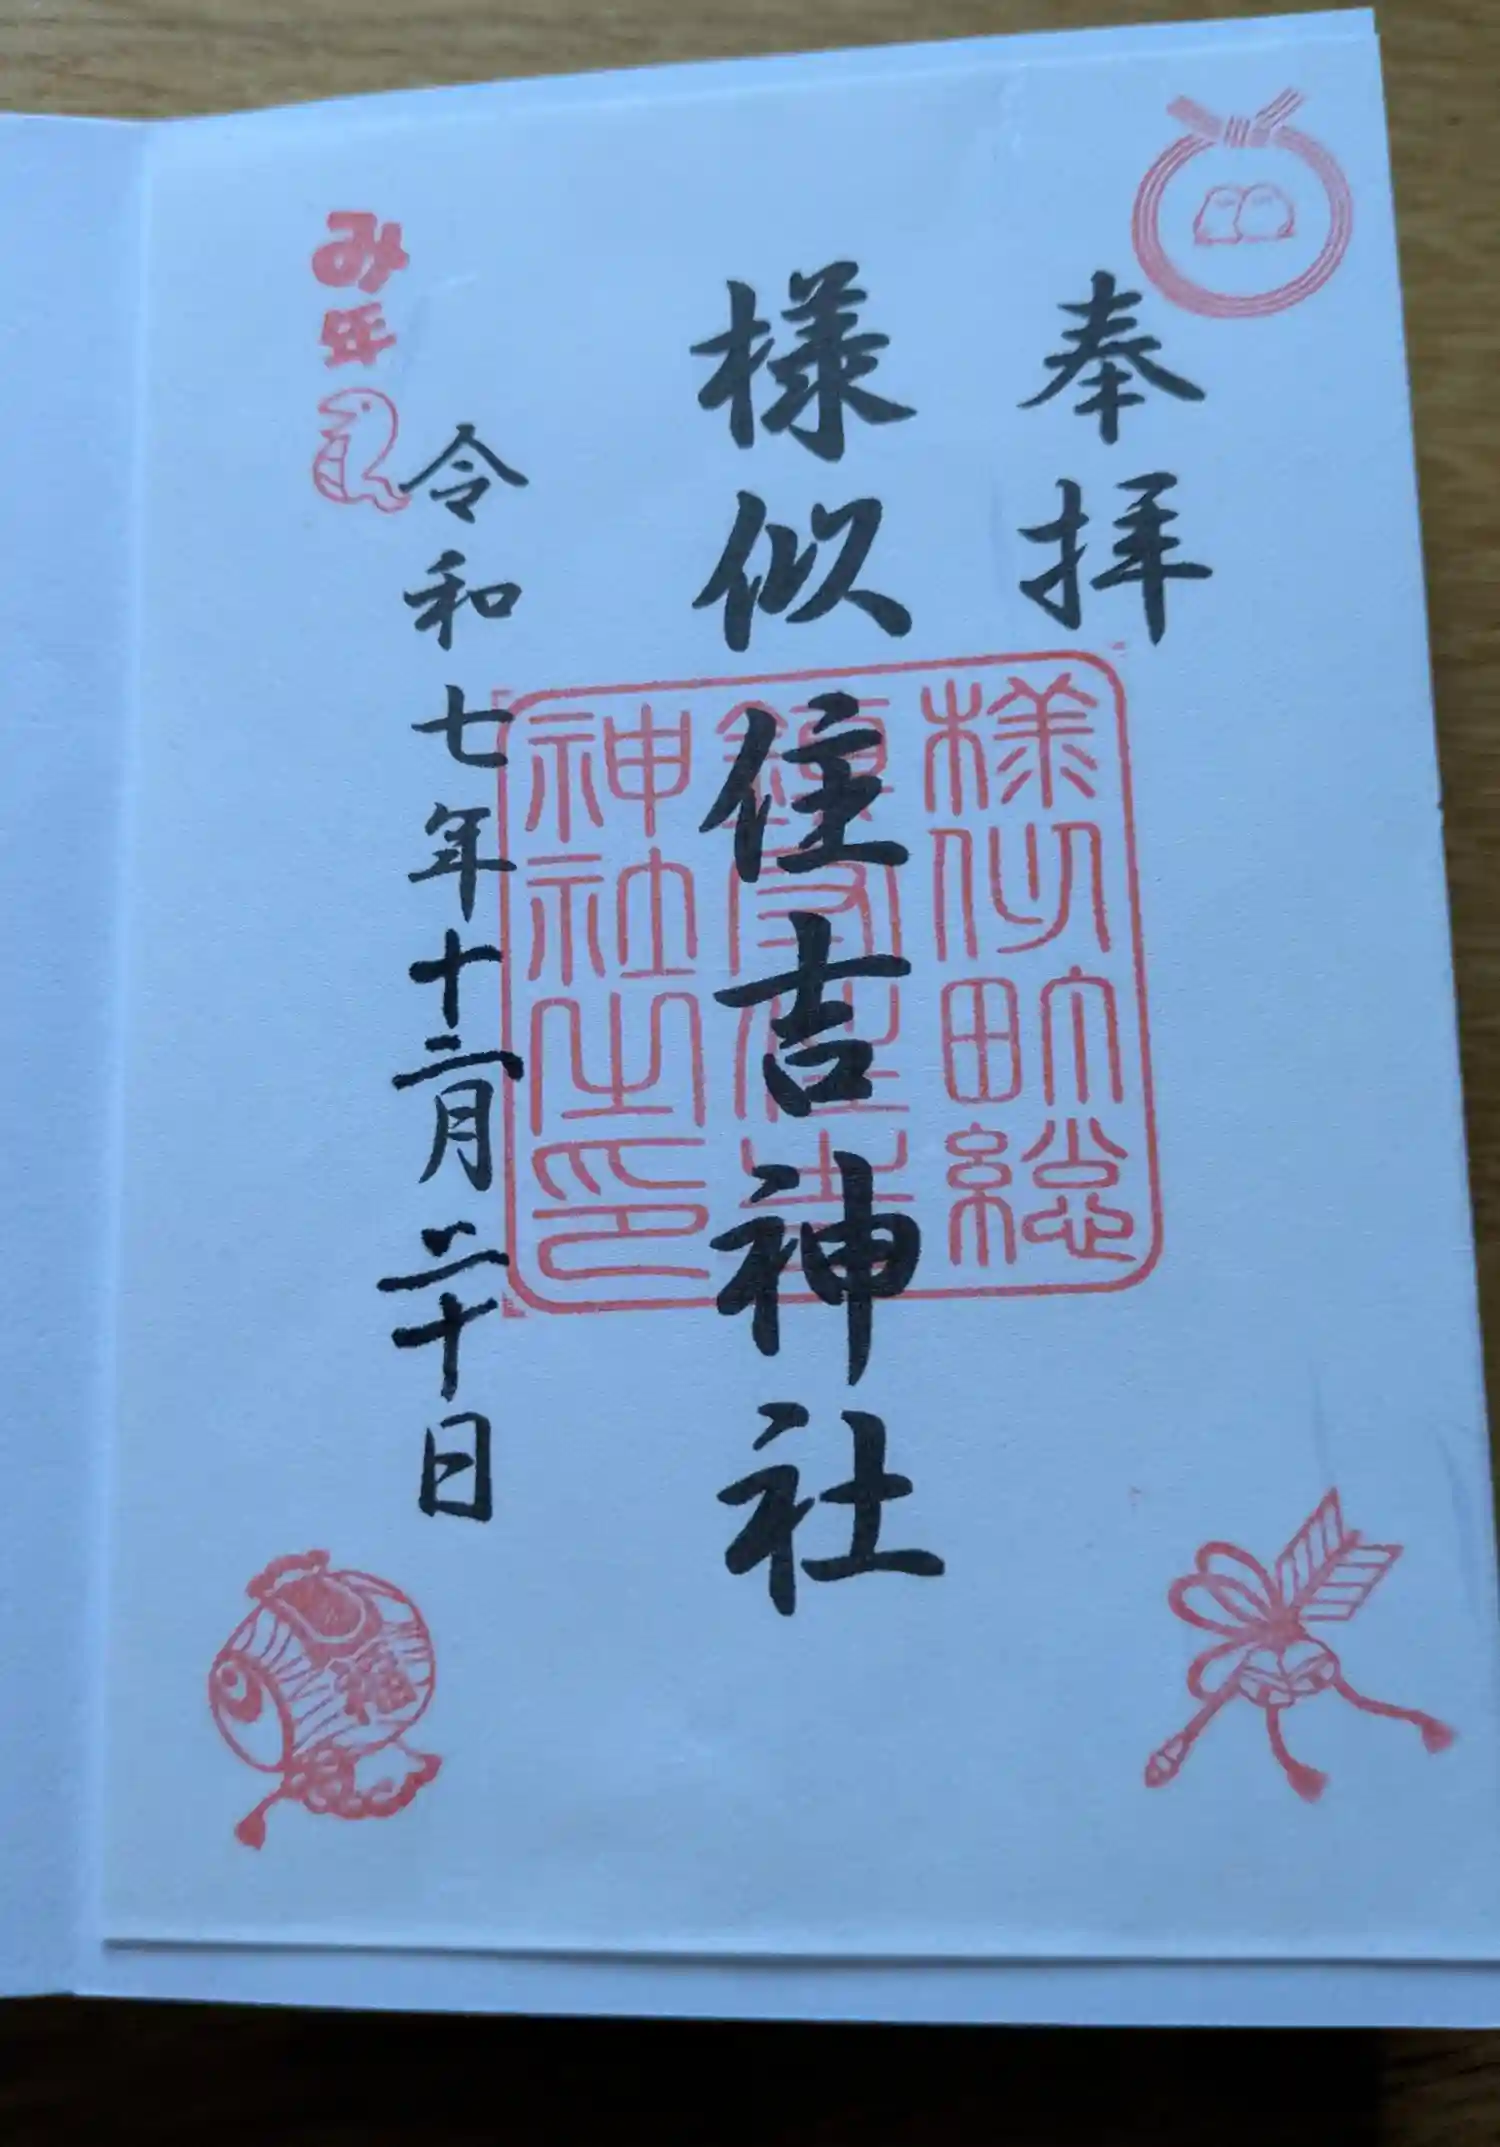 奉拝
様似住吉神社
様似町総
鎮守住吉
神社之印
令和七年十二月二十日
み年
福